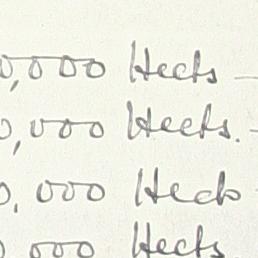 0,000 Hects
0,000 Hects.
0,000 Hects
000 Hects